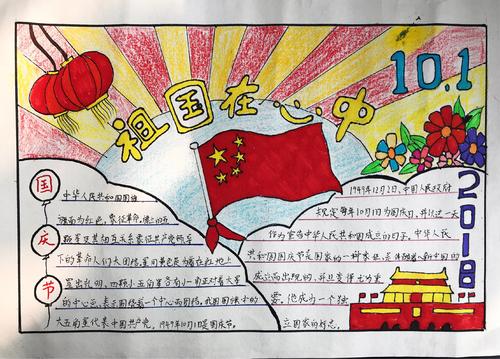 祖国在心中
10.1
2018
国庆节
中华人民共和国国旗
旗面为红色,象征革命。
路星及其相互关系象征共产党领导
下的革命人们大团结,星用黄色是为着在红地上
显出光明,四颗小五角星各有一角正对着大星
的中心点,表示围绕着一个中心而团结,
大五角星代表中国共产党,1949年10月1日是国庆节。
1949年12月2日,中国人民政府
规定每年10月1日为国庆日,并以这一天
作为宣告中华人民共和国成立的日子。中华人民
共和国国庆节是国家的一种象征,是伴随着新中国的
成立而出现的,并且变得尤为重
要。他成为一个独
立国家的标志。